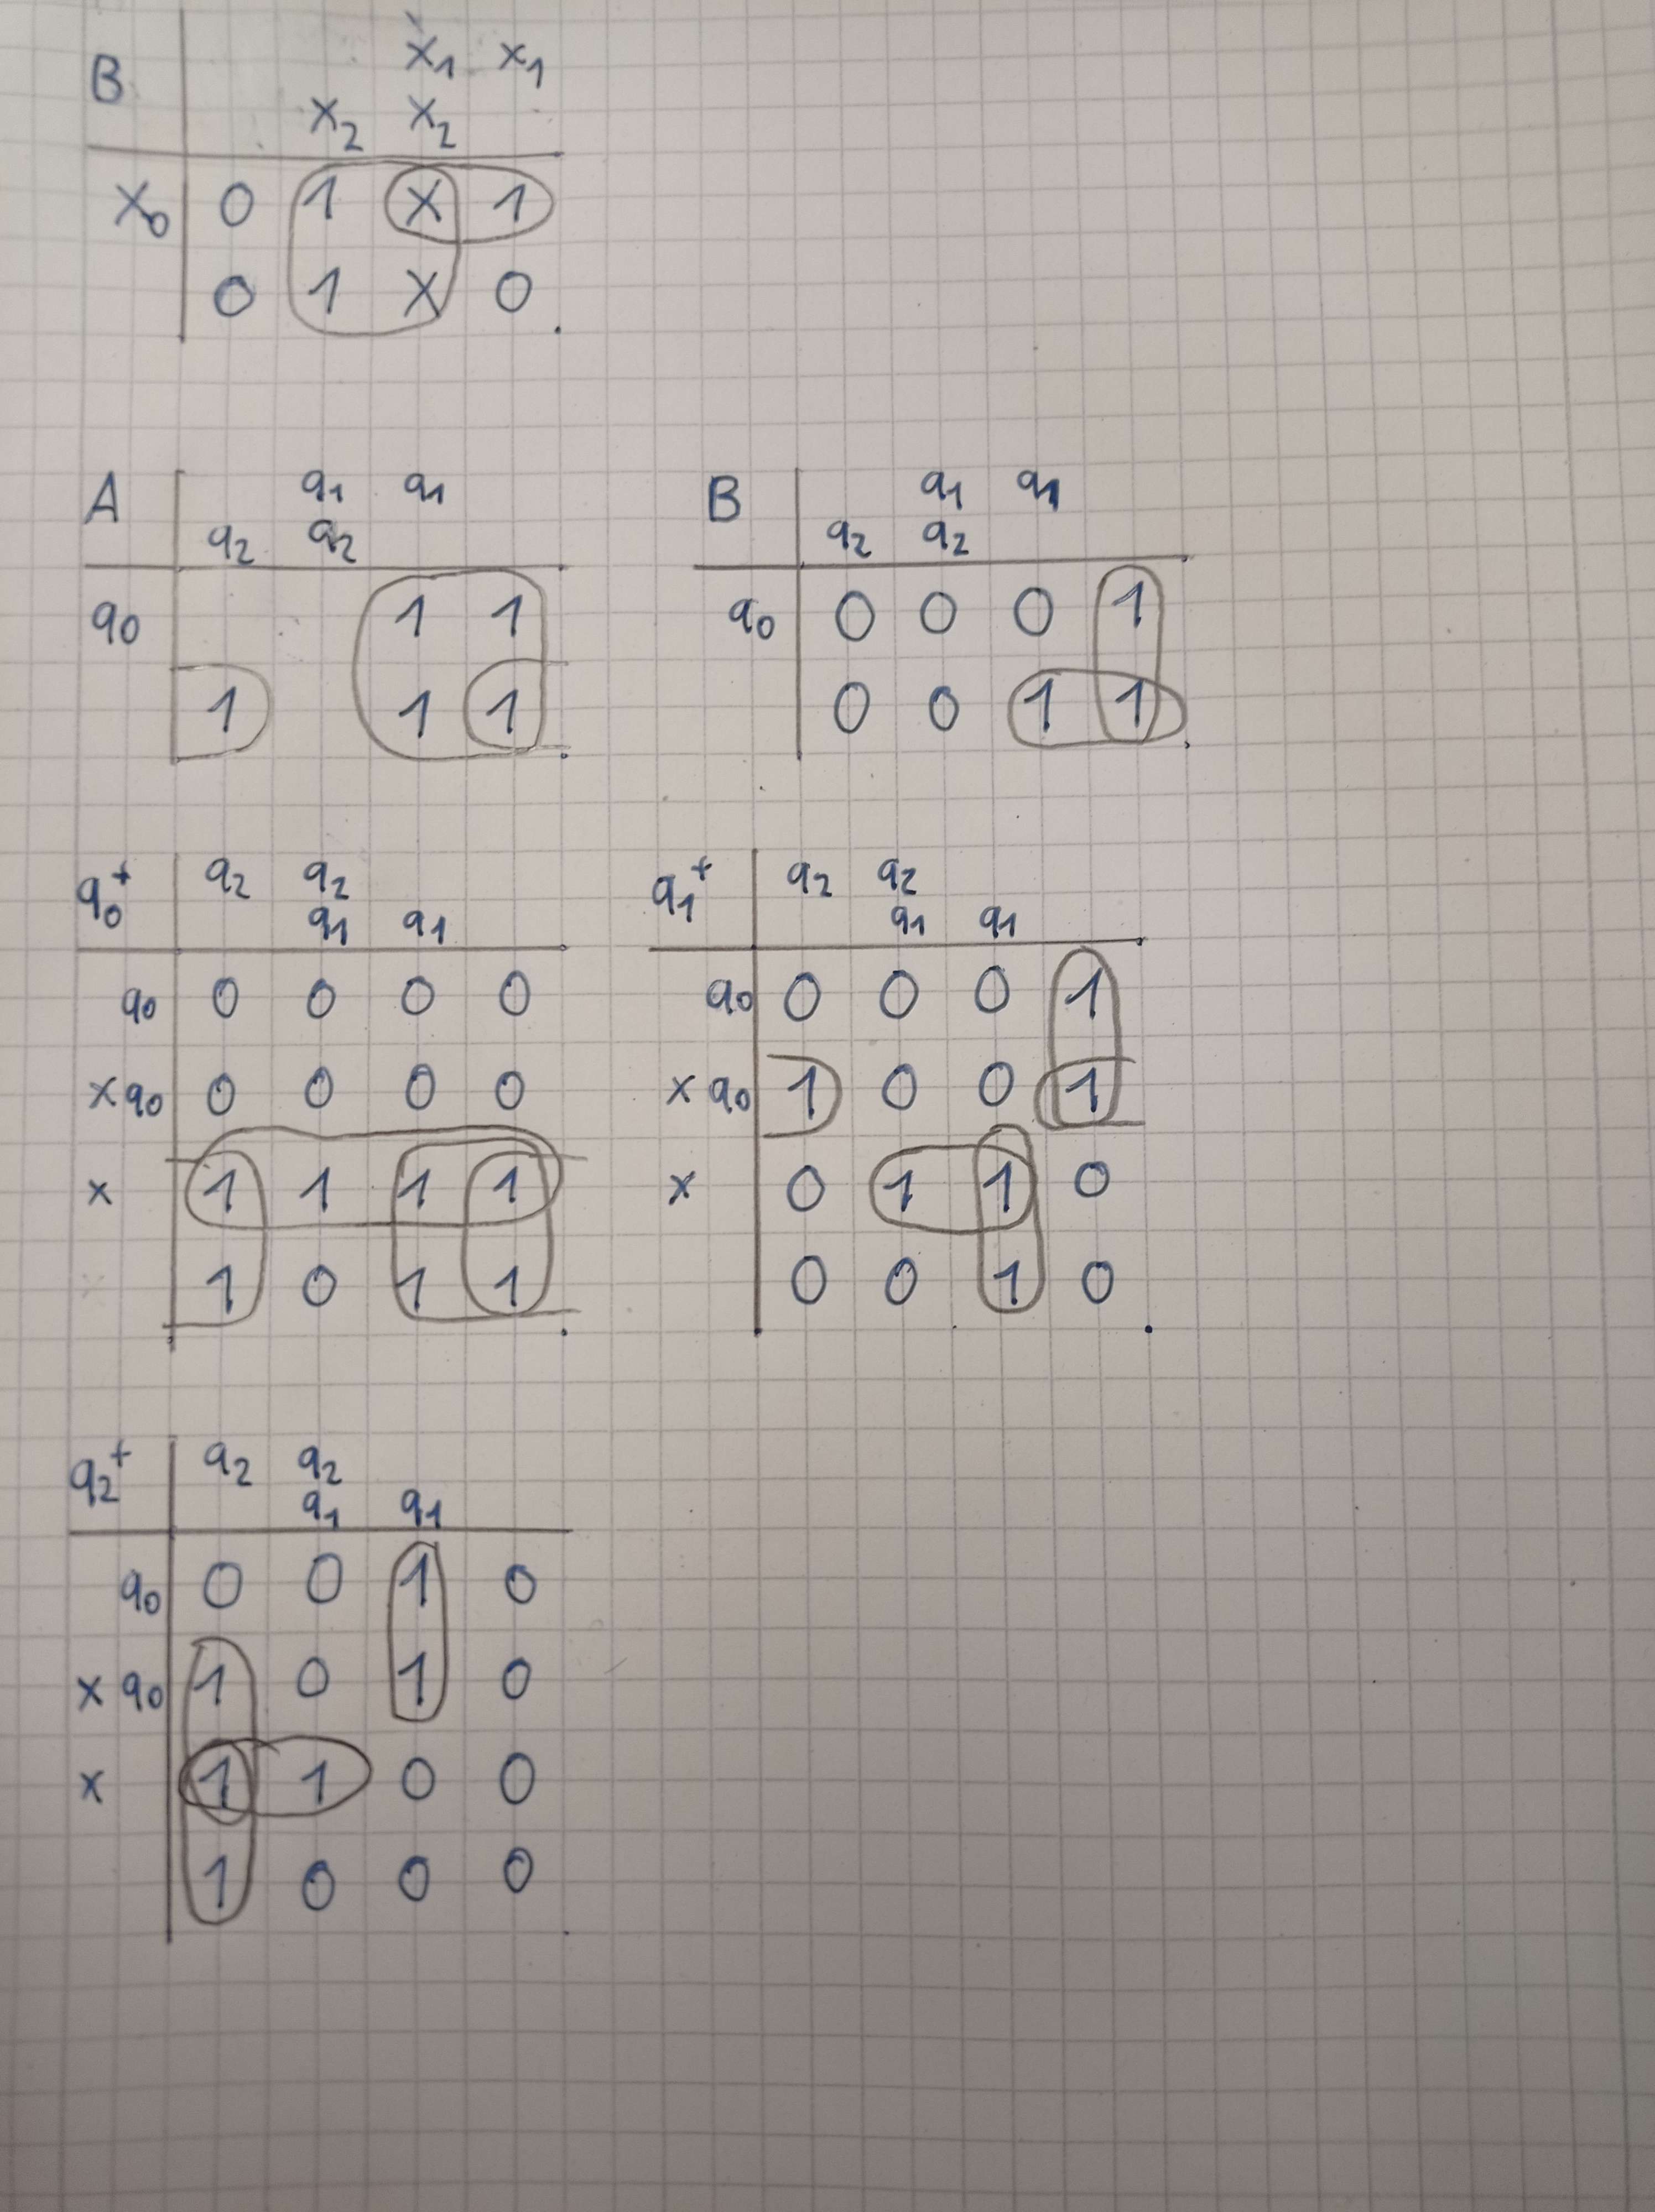 x₁ x₁
B
x₂ x₂
x₀ 0 1 x 1
0 1 x 0
A q₁ q₁
q₂ q₂
q₀ 1 1
1 1 1
B q₁ q₁
q₂ q₂
q₀ 0 0 0 1
0 0 1 1
q₀⁺ q₂ q₂
q₁ q₁
q₀ 0 0 0 0
x q₀ 0 0 0 0
x 1 1 1 1
1 0 1 1
q₁⁺ q₂ q₂
q₁ q₁
q₀ 0 0 0 1
x q₀ 1 0 0 1
x 0 1 1 0
0 0 1 0
q₂⁺ q₂ q₂
q₁ q₁
q₀ 0 0 1 0
x q₀ 1 0 1 0
x 1 1 0 0
1 0 0 0